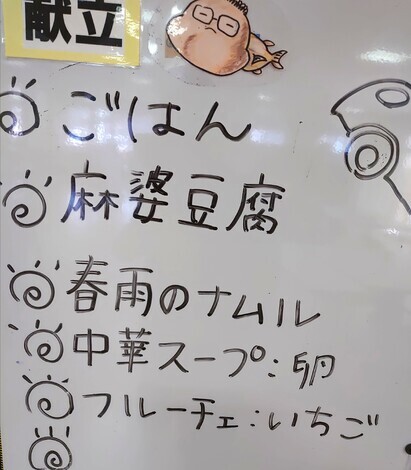 献立
ごはん
麻婆豆腐
春雨のナムル
中華スープ:卵
フルーチェ:いちご